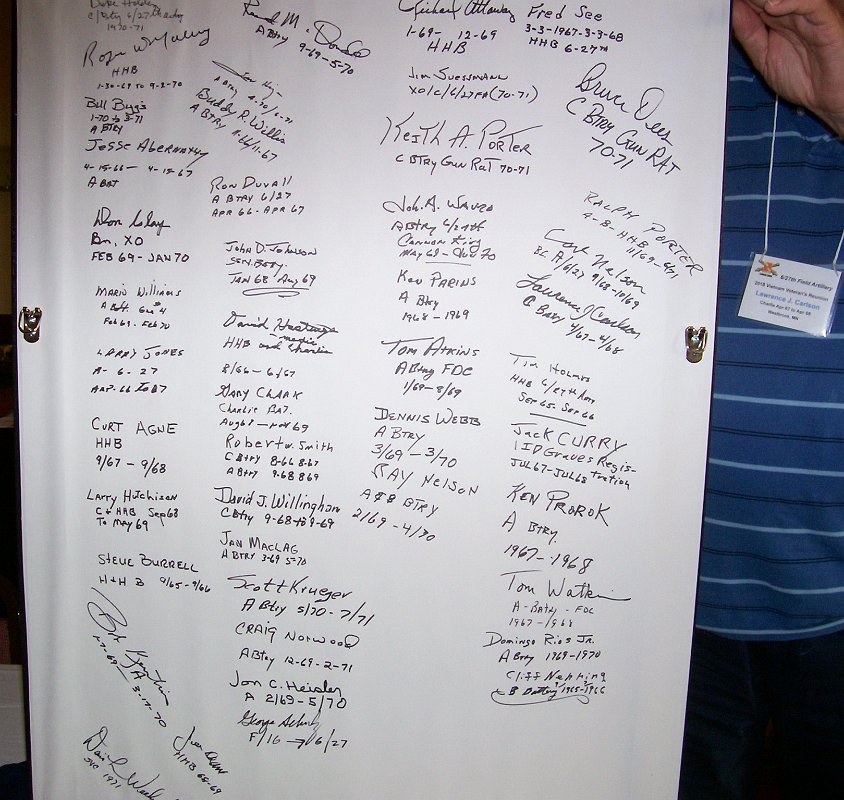 Duke
C/Btry 6/27th Arty
1970-71
Roger
HHB
1-30-69 TO 9-2-70
Bill Biggs
1-70 to 3-71
A BTRY
Jesse Abernathy
4-15-66 — 4-15-67
A BAT
Don
Bn, XO
FEB 69 - JAN 70
MARIO Williams
A Batt. Gun #4
Feb 69 - Feb 70
LARRY JONES
A- 6-27
CURT AGNE
HHB
9/67 - 9/68
Larry Hutchison
C + HHB Sep 68
To May 69
STEVE BURRELL
H+H B 9/65-9/66
Bob
A
3-17-70
David
SVC 1971
HHB 68-69
M.
A BTRY
9-69-5-70
A BTRY
Buddy R. Willis
A BTRY
RON DUVALL
A BTRY 6/27
APR 66 - APR 67
John D. Johnson
SEN. BETY.
JAN 68 Aug 69
David
HHB and Charlie
8/66 - 6/67
Gary Clark
Charlie BAT.
Aug 68 - Nov 69
Robert W. Smith
C Btry 8-66 8-67
A BTRY 9-68 8 69
David J. Willingham
C Btry 9-68 to 9-69
JAN MACLAG
A BTRY 3-69 5-70
Scott Krueger
A Btry 5/70 - 7/71
CRAIG NORWOOD
A Btry 12-69-2-71
Jon C. Heisler
A 2/69 - 5/70
George
F/16 → 6/27
Richard Attaway
1-69- 12-69
HHB
Jim Suessmann
XO/C/6/27FA (70-71)
KEITH A. PORTER
C BTRY GUN RAT 70-71
Joh. A.
A Btry 6/27th
Cannon King
KEN PARINS
A Btry
1968 - 1969
TOM ATKINS
A Btry FDC
1/69 - 8/69
DENNIS WEBB
A BTRY
3/69 - 3/70
RAY NELSON
A&B BTRY
2/69 - 4/70
Fred See
3-3-1967-3-3-68
HHB 6-27th
Bruce Dees
C BTRY GUN RAT
70-71
RALPH PORTER
A-B-HHB
11/69-4/71
Nelson
BC A/6/27 9/68-10/69
Lawrence J Carlson
C Btry 4/67-4/68
Tim Holmes
HHB 6/27th Arty
Sep 65 - Sep 66
JACK CURRY
1 ID Graves Regis-
JUL67-JUL68 tration
KEN PROROK
A BTRY.
1967 - 1968
Tom
A-Batry - FDC
1967-1968
Domingo Rios Jr.
A Btry 1969-1970
Cliff Nehring
B Battery 1965-1966
6/27th Field Artillery
2018 Vietnam Veteran's Reunion
Lawrence J. Carlson
Charlie Apr 67 to Apr 68
Westbrook, MN